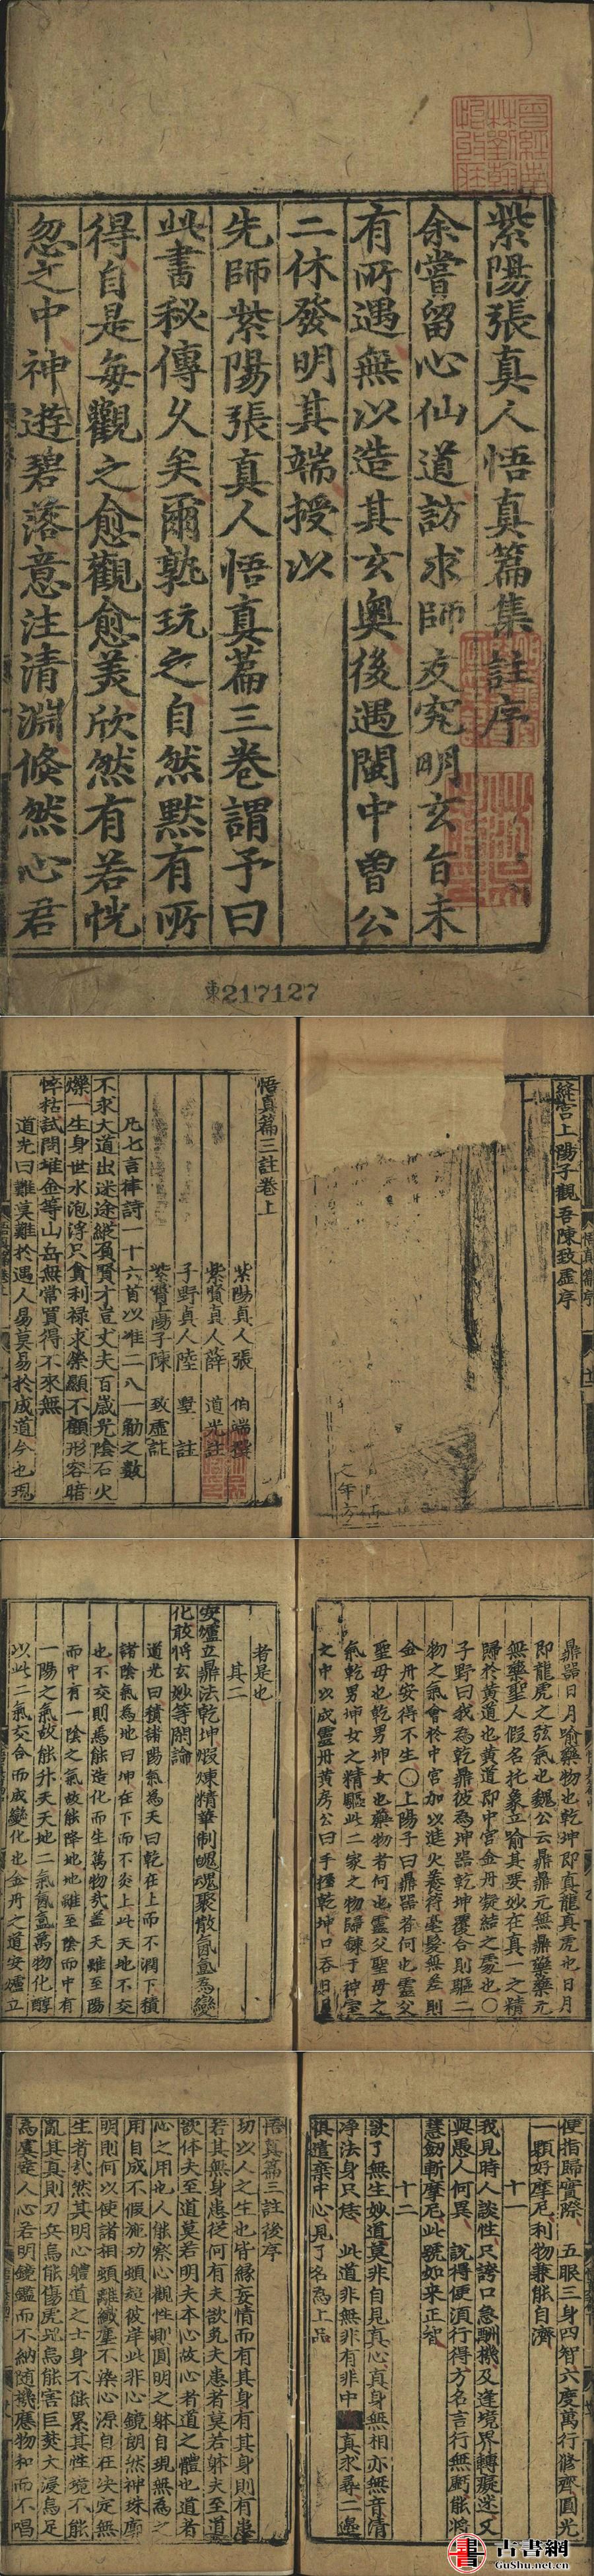 紫陽張真人悟真篇集註序
余嘗留心仙道訪求師友究明玄旨未
有所遇無以造其玄奧後遇閩中曾公
二休發明其端授以
先師紫陽張真人悟真篇三卷謂予曰
此書秘傳久矣爾孰玩之自然默有所
得自是每觀之愈觀愈美欣然有若恍
忽之中神遊碧落意注清淵倏然心君
東217127
絳宮上陽子觀吾陳致虛序
悟真篇序
悟真篇三註卷上
紫陽真人張伯端撰
紫賢真人薛道光註
子野真人陸墅註
紫霄上陽子陳致虛註
凡七言律詩一十六首以准二八一觔之數
不求大道出迷途縱負賢才豈丈夫百歲光陰石火
爍一生身世水泡浮只貪利祿求榮顯不顧形容暗
悴枯試問堆金等山岳無常買得不來無
道光曰難莫難於遇人易莫易於成道今也現
鼎器日月喻藥物也乾坤即真龍真虎也日月
即龍虎之弦氣也魏公云鼎鼎元無鼎藥藥元
無藥聖人假名托象立喻其要妙在真一之精
歸於黃道也黃道即中宮金丹凝結之處也○
子野曰我為乾鼎彼為坤器乾坤覆合則驅二
物之氣會於中宮加以進火養符毫髮無差則
金丹安得不生○上陽子曰鼎器者何也靈父
聖母也乾男坤女也藥物者何也靈父聖母之
氣乾男坤女之精驅此二家之物歸鍊于神室
之中以成靈丹黃房公曰手握乾坤口吞日月
者是也
其二
安爐立鼎法乾坤煆煉精華制魄魂聚散氤氳為變
化敢將玄妙等閑論
道光曰積諸陽氣為天曰乾在上而不潤下積
諸陰氣為地曰坤在下而不炎上此天地不交
也不交則焉能造化而生萬物哉蓋天雖至陽
而中有一陰之氣故能降地地雖至陰而中有
一陽之氣故能升天天地二氣氤氳萬物化醇
以此二氣交合而成變化也金丹之道安爐立
便指歸實際　五眼三身四智六度萬行修齊圓光
一顆好摩尼利物兼能自濟
十一
我見時人談性只誇口急酬機及逢境界轉癡迷又
與愚人何異　說得便須行得方名言行無虧能將
慧劒斬摩尼此號如來正智
十二
欲了無生妙道莫非自見真心真身無相亦無音清
淨法身只恁　此道非無非有非中　真求尋二邊
俱遣棄中心見了名為上品
悟真篇三註後序
切以人之生也皆緣妄情而有其身有其身則有患
若其無身患從何有夫欲免夫患者莫若躰夫至道
欲体夫至道莫若明夫本心故心者道之體也道者
心之用也人能察心觀性則圓明之躰自現無為之
用自成不假施功頓超彼岸此非心鏡朗然神珠廓
明則何以使諸相頓離纖塵不染心源自在决定無
生者哉然其明心體道之士身不能累其性境不能
亂其真則刀兵烏能傷虎兕烏能害巨焚大浸烏足
為虞達人心若明鏡鑑而不納隨機應物和而不唱
古書網
GuShu.net.cn